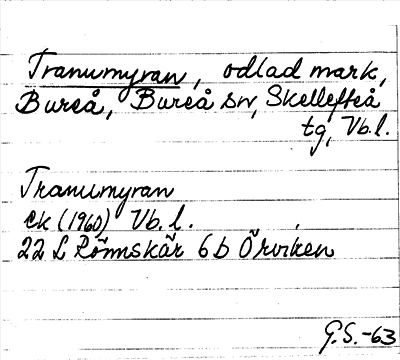 Tranumyran, odlad mark,
Bureå, Bureå sn, Skellefteå
tg, Vb.l.
Tranumyran
ek (1960) Vb. l.
22 L Rönnskär 6b Örviken
G.S.-63